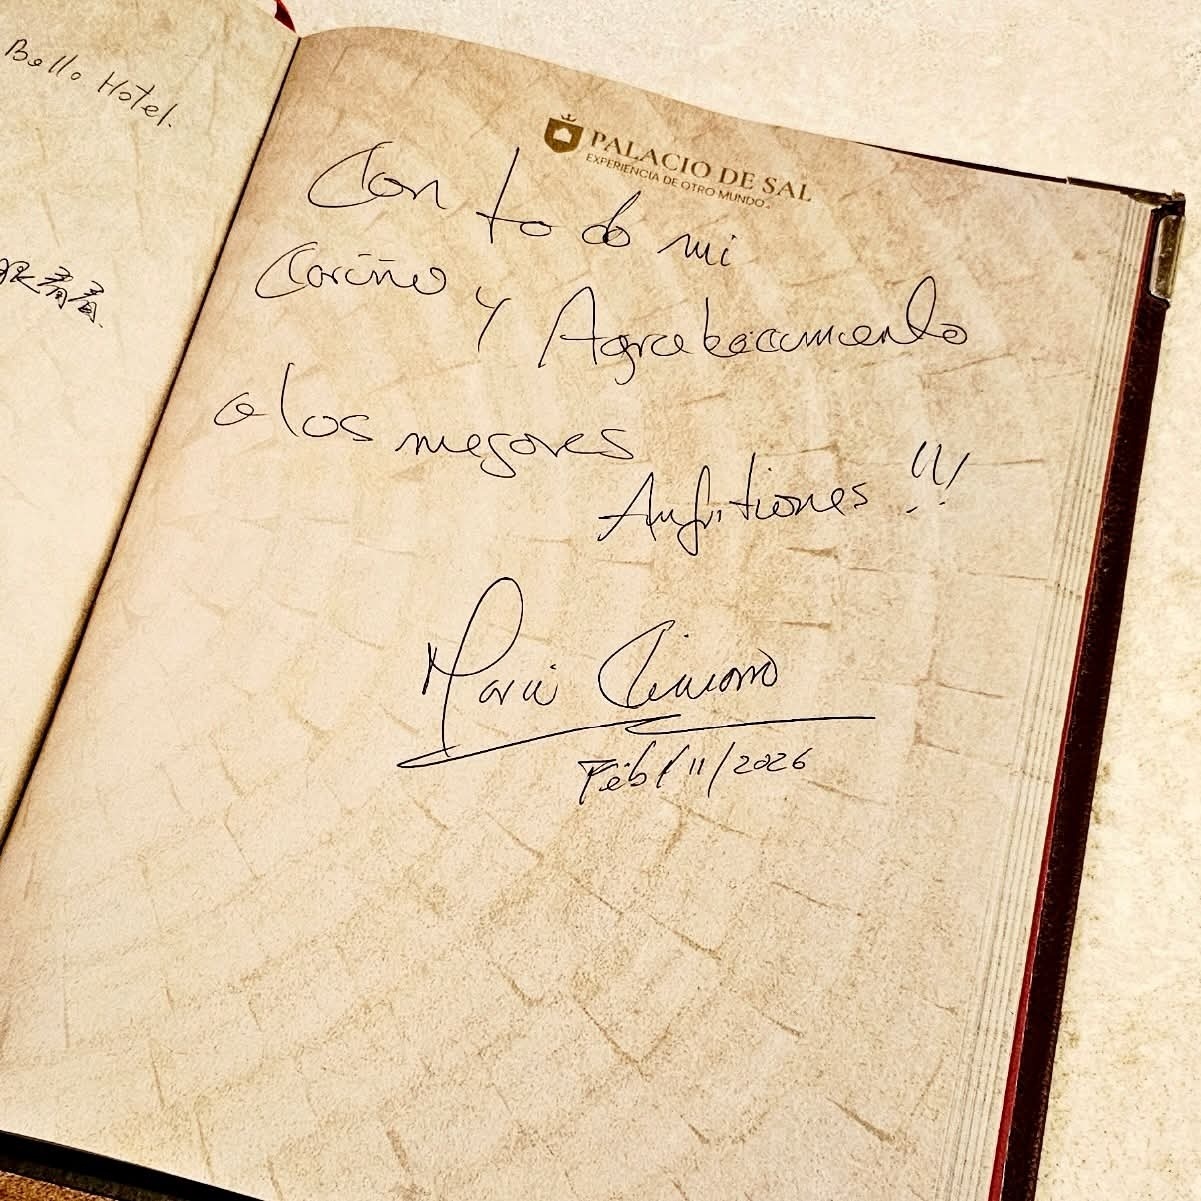 Bello Hotel.
PALACIO DE SAL
EXPERIENCIA DE OTRO MUNDO
Con todo mi
Cariño y Agradecimiento
a los mejores
Anfitriones !!!
Feb/11/2026